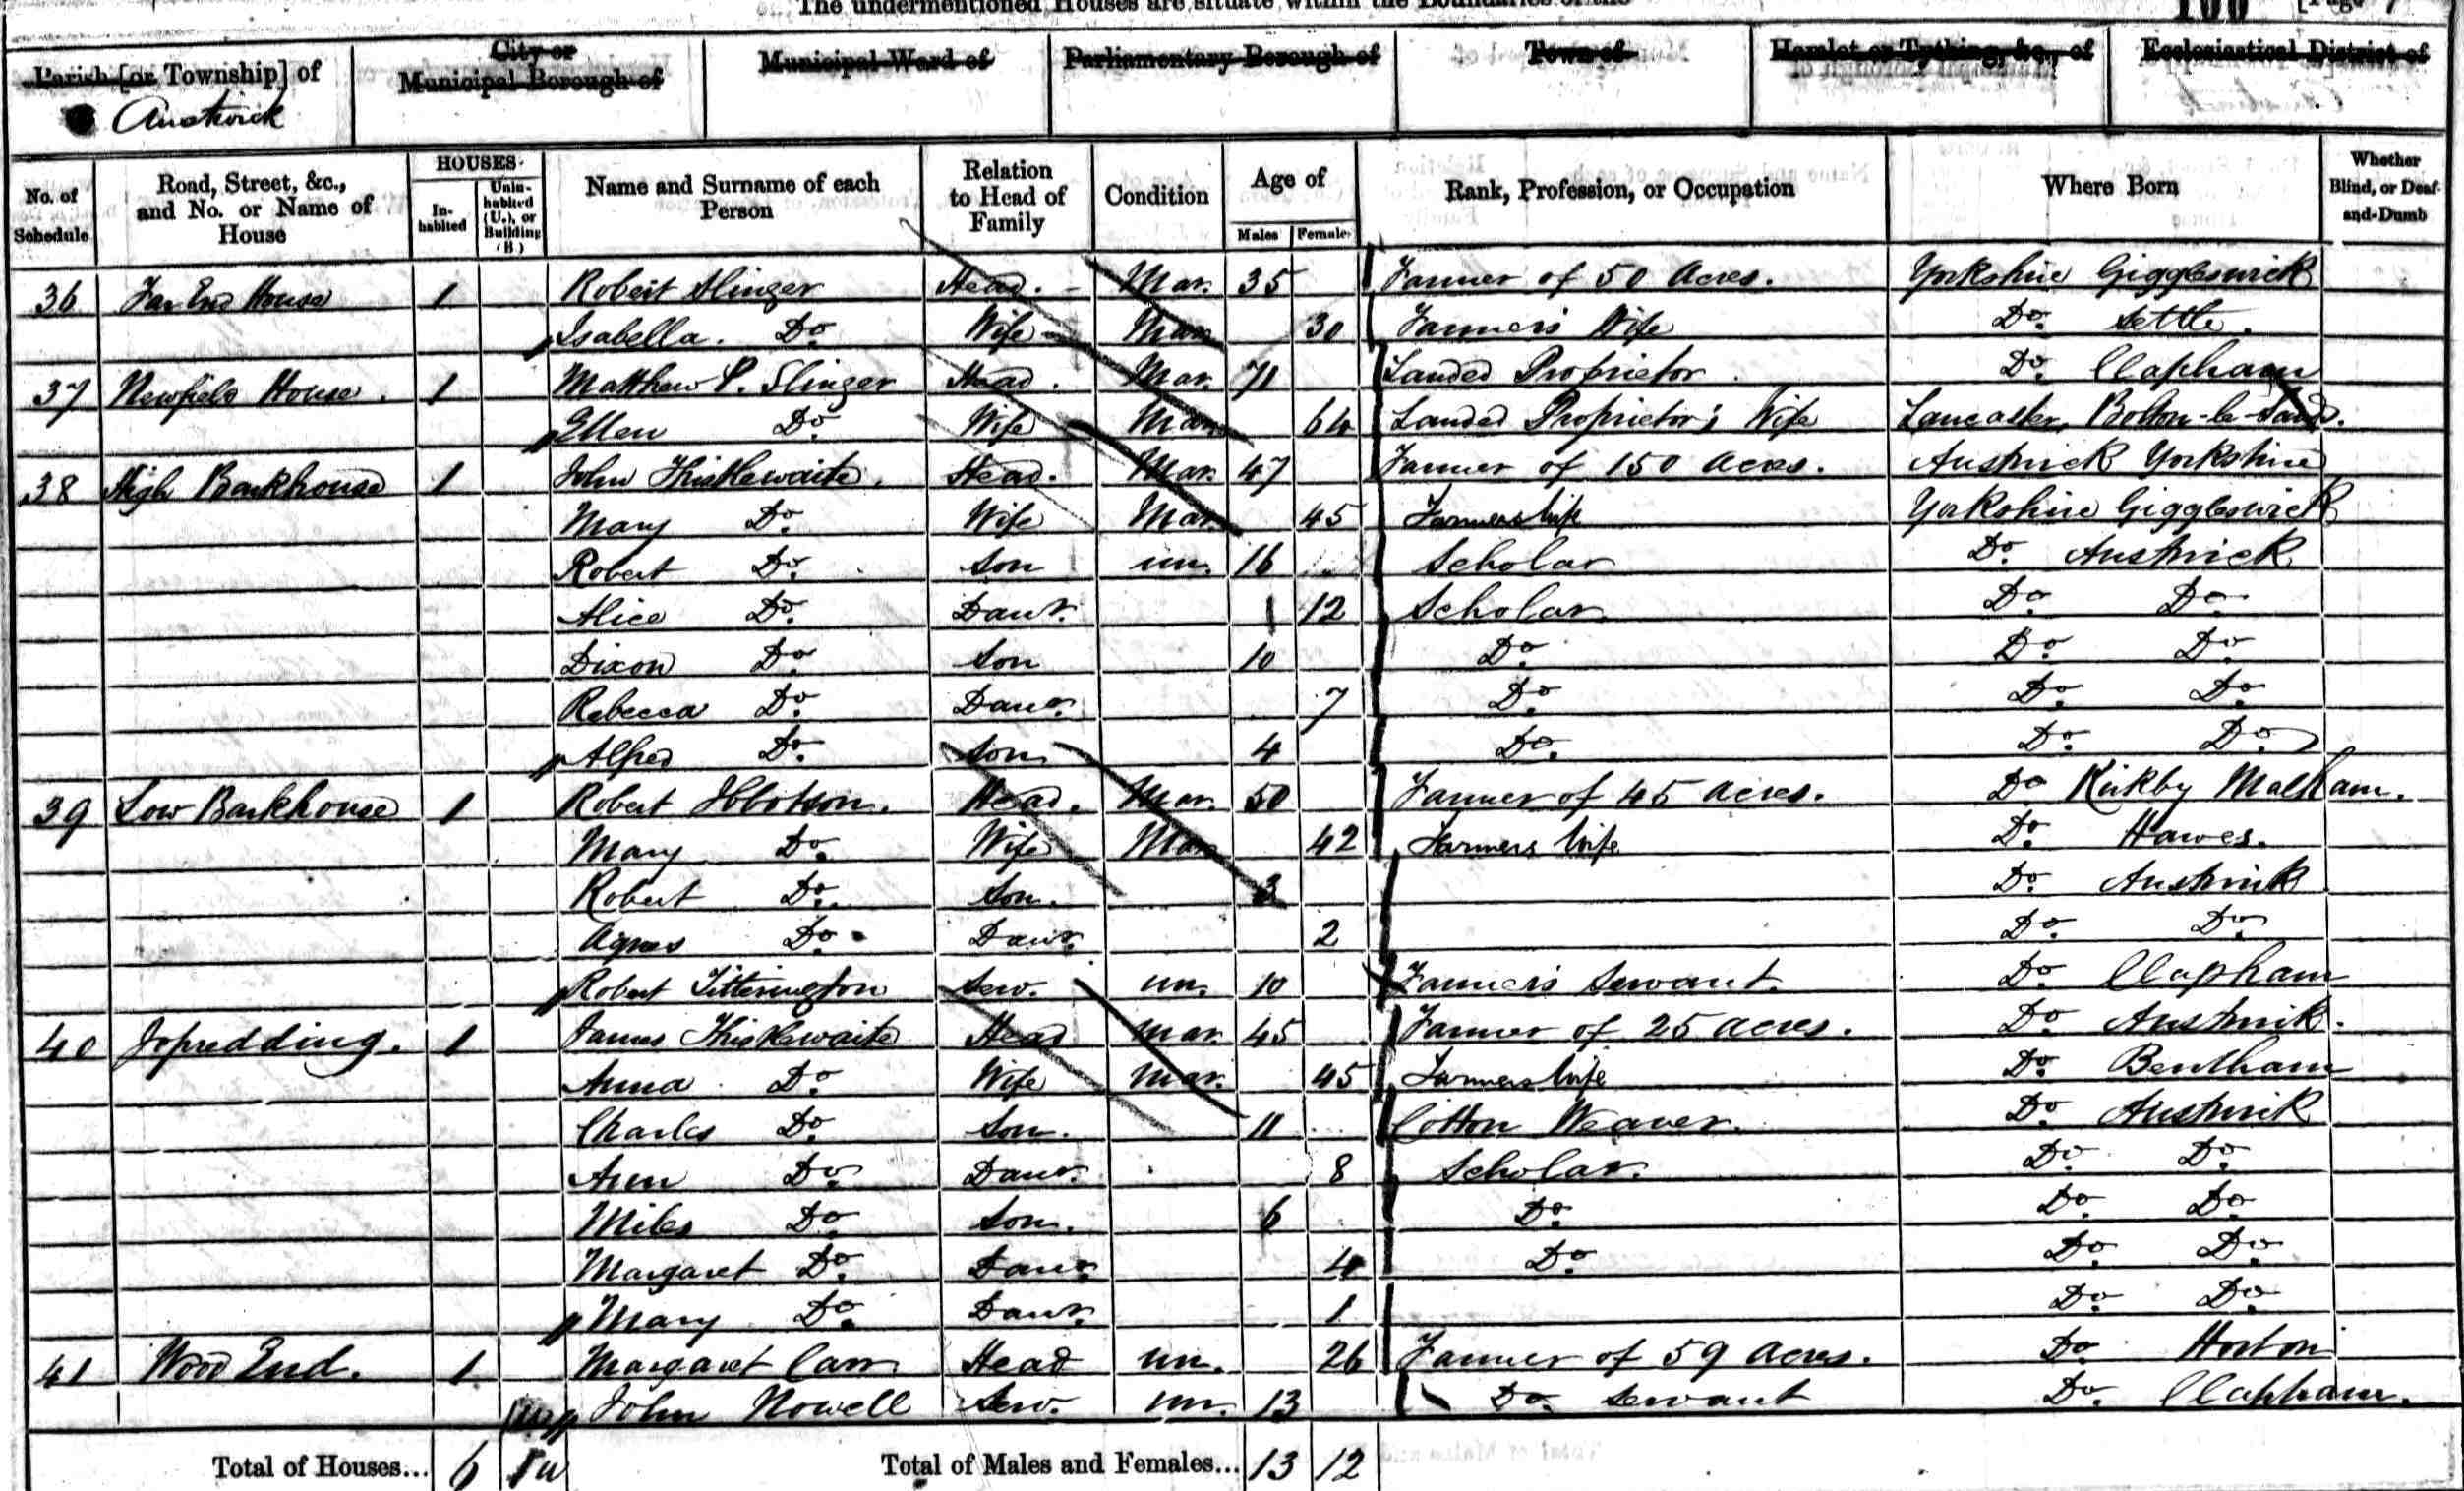 The undermentioned Houses are situate within the Boundaries of the
100 [Page 7
Parish [or Township] of
City or Municipal Borough of
Municipal Ward of
Parliamentary Borough of
Town of
Hamlet or Tything, &c., of
Ecclesiastical District of
Austwick
No. of Schedule
Road, Street, &c., and No. or Name of House
HOUSES
Inhabited
Uninhabited (U.), or Building (B)
Name and Surname of each Person
Relation to Head of Family
Condition
Age of
Males
Females
Rank, Profession, or Occupation
Where Born
Whether Blind, or Deaf-and-Dumb
36 Far End House 1 Robert Slinger Head. Mar. 35 Farmer of 50 Acres. Yorkshire Giggleswick
Isabella. Do. Wife Mar. 30 Farmer's Wife Do. Settle.
37 Newfield House. 1 Matthew P. Slinger Head. Mar. 71 Landed Proprietor. Do. Clapham
Ellen Do. Wife Mar. 64 Landed Proprietor's Wife Lancaster, Bolton-le-Sands.
38 High Barkhouse 1 John Thistlewaite. Head. Mar. 47 Farmer of 150 Acres. Austwick Yorkshire
Mary Do. Wife Mar. 45 Farmers Wife Yorkshire Giggleswick
Robert Do. Son un. 16 Scholar Do. Austwick
Alice Do. Daur. 12 Scholar Do. Do.
Dixon Do. Son 10 Do. Do. Do.
Rebecca Do. Daur. 7 Do. Do. Do.
Alfred Do. Son 4 Do. Do. Do.
39 Low Barkhouse 1 Robert Ibbotson. Head. Mar. 50 Farmer of 45 Acres. Do Kirkby Malham.
Mary Do. Wife Mar 42 Farmers Wife Do. Hawes.
Robert Do. Son. 3 Do. Austwick
Agnes Do. Daur. 2 Do. Do.
Robert Titterington Serv. un. 10 Farmer's Servant. Do. Clapham
40 Jopredding. 1 James Thistlewaite Head Mar 45 Farmer of 25 Acres. Do. Austwick.
Anna Do. Wife Mar. 45 Farmers Wife Do. Bentham
Charles Do. Son. 11 Cotton Weaver. Do. Austwick
Ann Do. Daur. 8 Scholar. Do. Do.
Miles Do. Son. 6 Do. Do. Do.
Margaret Do. Daur. 4 Do. Do. Do.
Mary Do. Daur. 1 Do. Do.
41 Wood End. 1 Margaret Carr Head un. 26 Farmer of 59 Acres. Do. Horton
John Nowell Serv. un. 13 Do. Servant Do. Clapham.
Total of Houses... 6 Total of Males and Females... 13 12